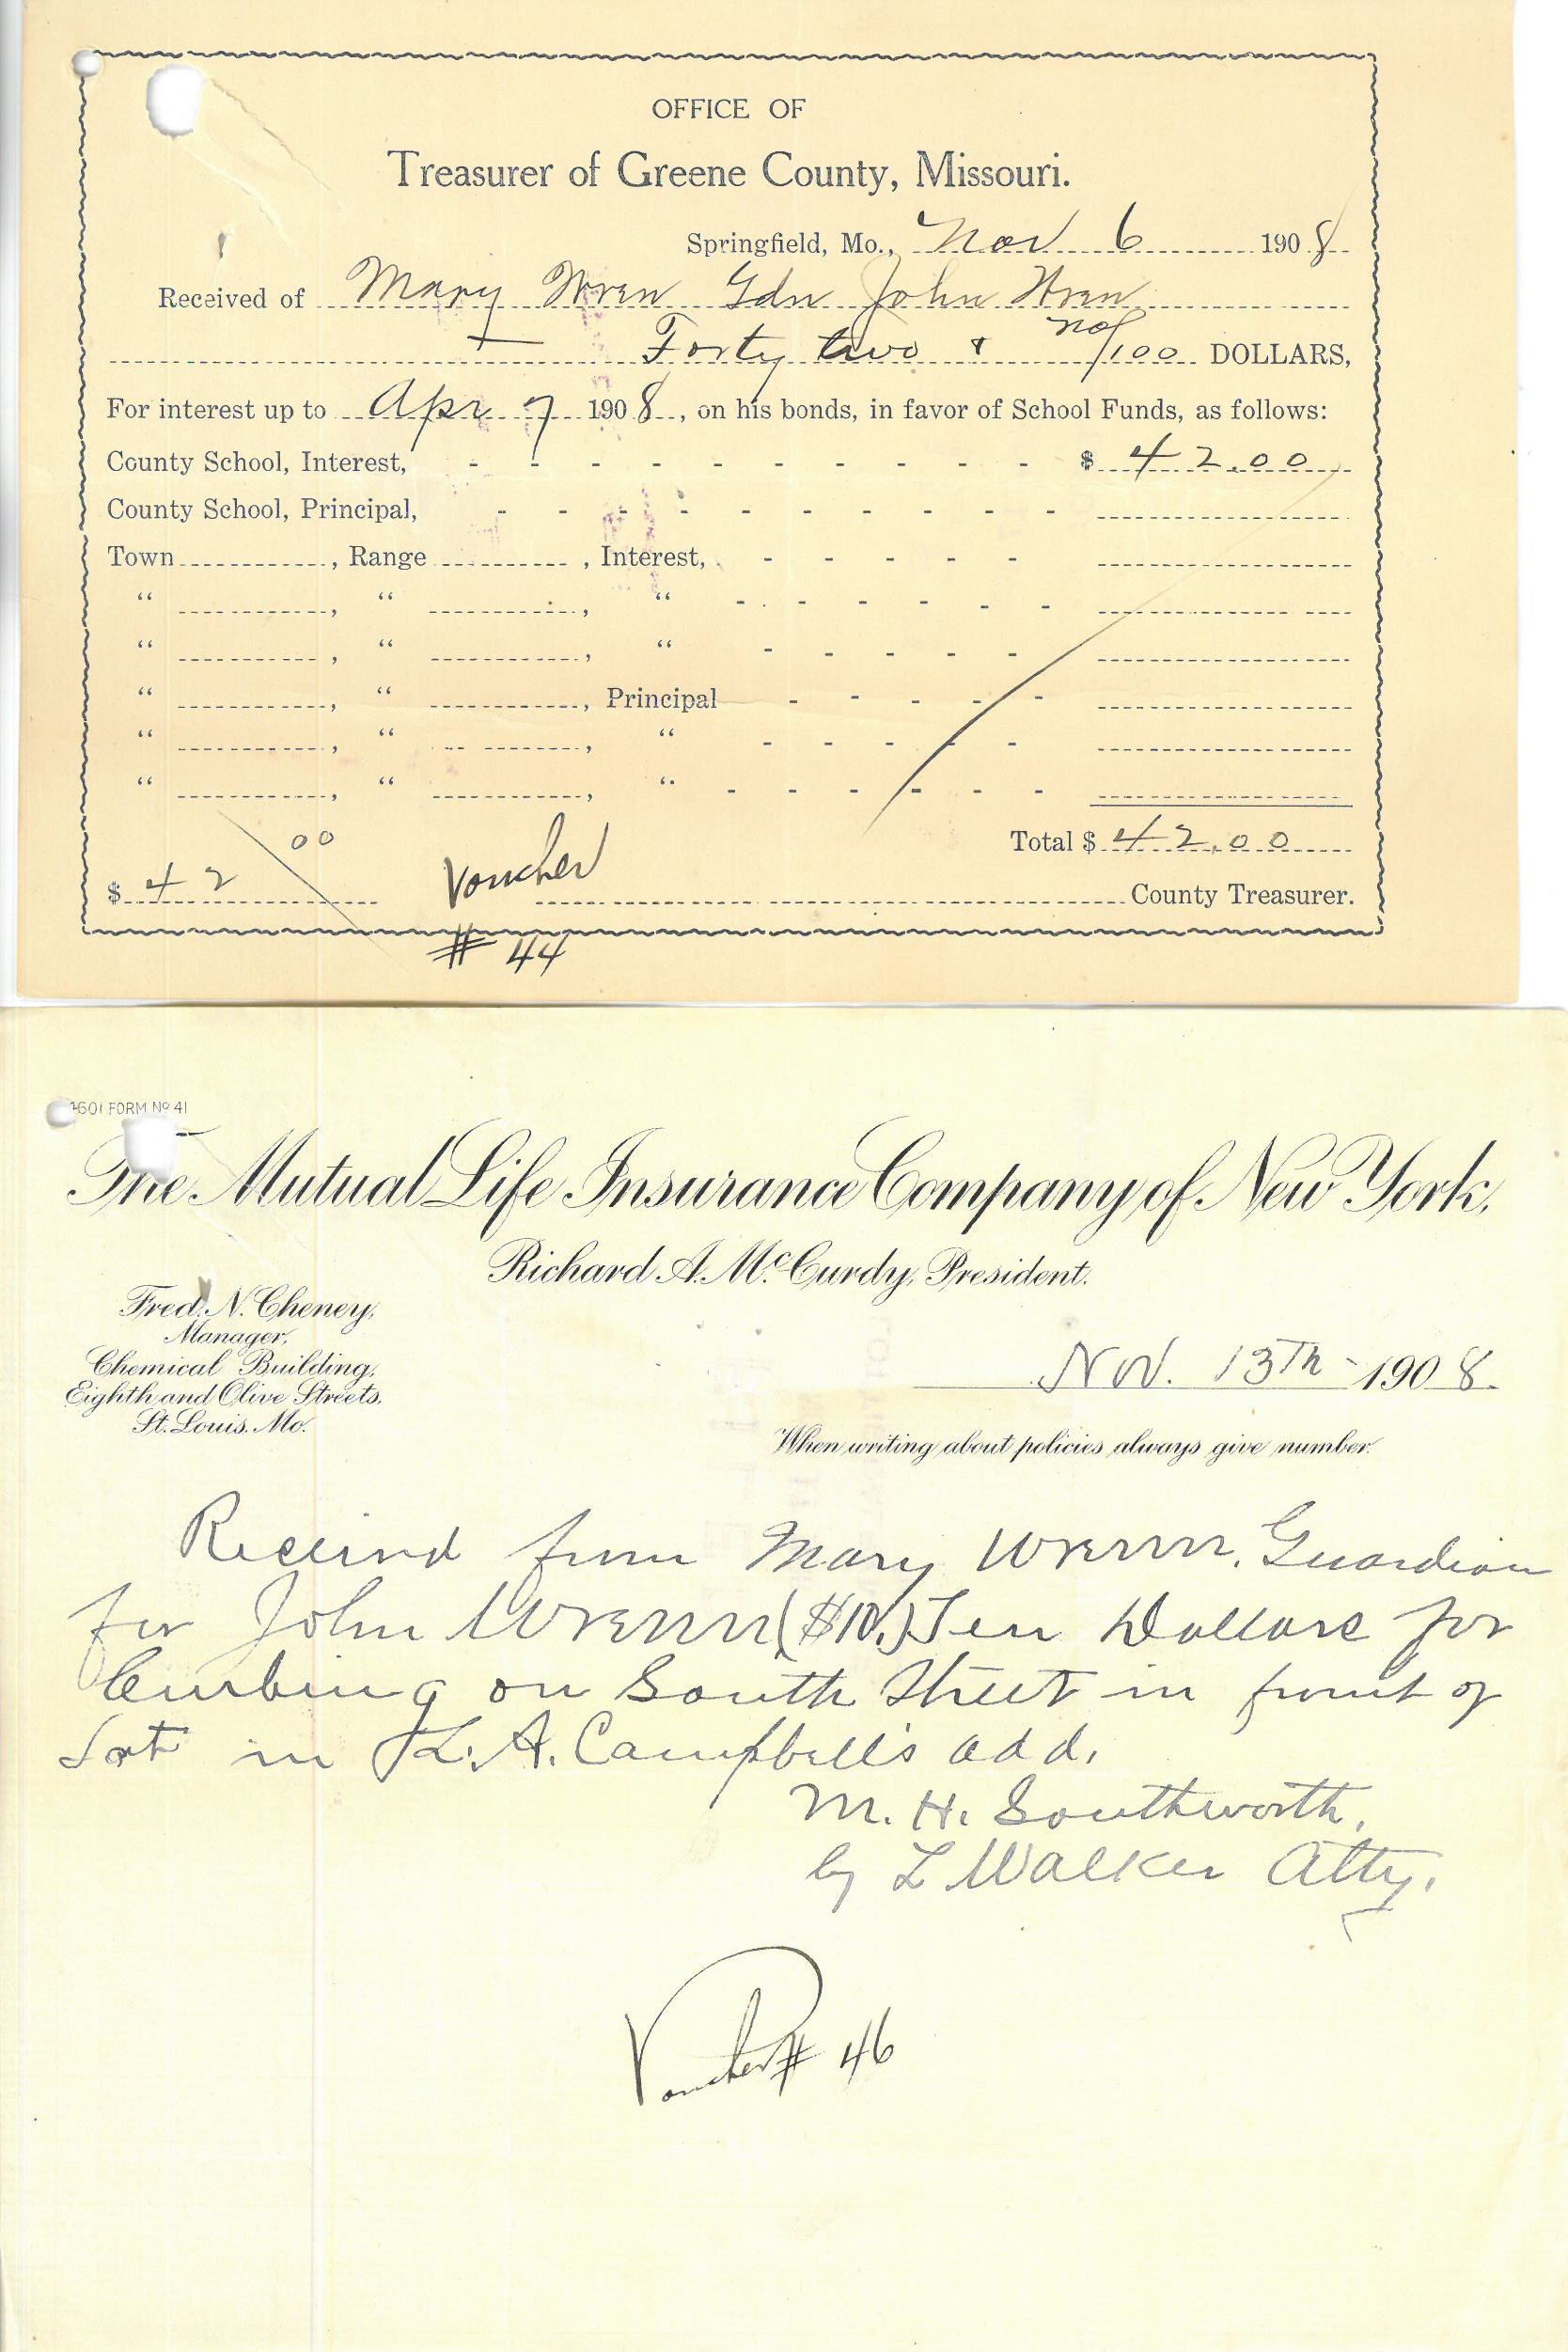 OFFICE OF
Treasurer of Greene County, Missouri.
Springfield, Mo., Nov 6 1908
Received of Mary Wren Gdn John Wren
Forty two & no/100 DOLLARS,
For interest up to Apr 7 1908, on his bonds, in favor of School Funds, as follows:
County School, Interest, $ 42.00
County School, Principal,
Town , Range , Interest,
" , " , "
" , " , "
" , " , Principal
" , " , "
" , " , "
Total $ 42.00
$ 42 00 Voucher County Treasurer.
# 44
4601 FORM No 41
The Mutual Life Insurance Company of New York,
Richard A. McCurdy, President.
Fred. N. Cheney,
Manager,
Chemical Building,
Eighth and Olive Streets,
St. Louis. Mo.
Nov. 13th - 1908.
When writing about policies always give number.
Received from Mary Wrenn, Guardian
for John Wrenn ($10.) Ten Dollars for
Curbing on South Street in front of
Lot in L. A. Campbell's add.
M. H. Southworth,
by L Walker Atty.
Voucher # 46